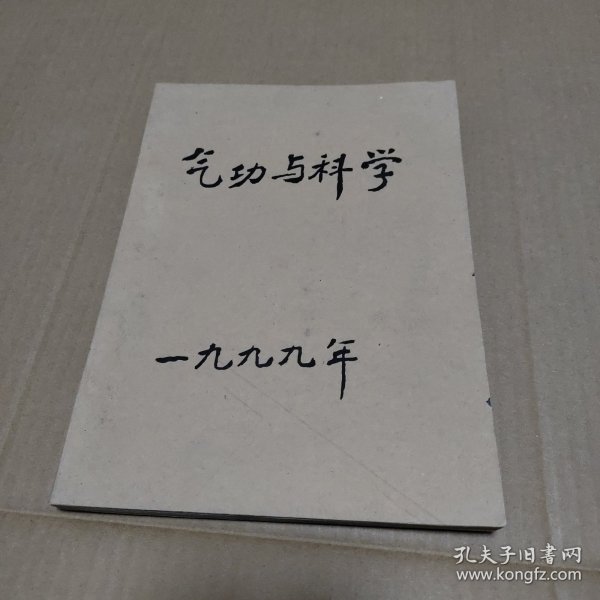 气功与科学
一九九九年
孔夫子旧書网
www.kongfz.com